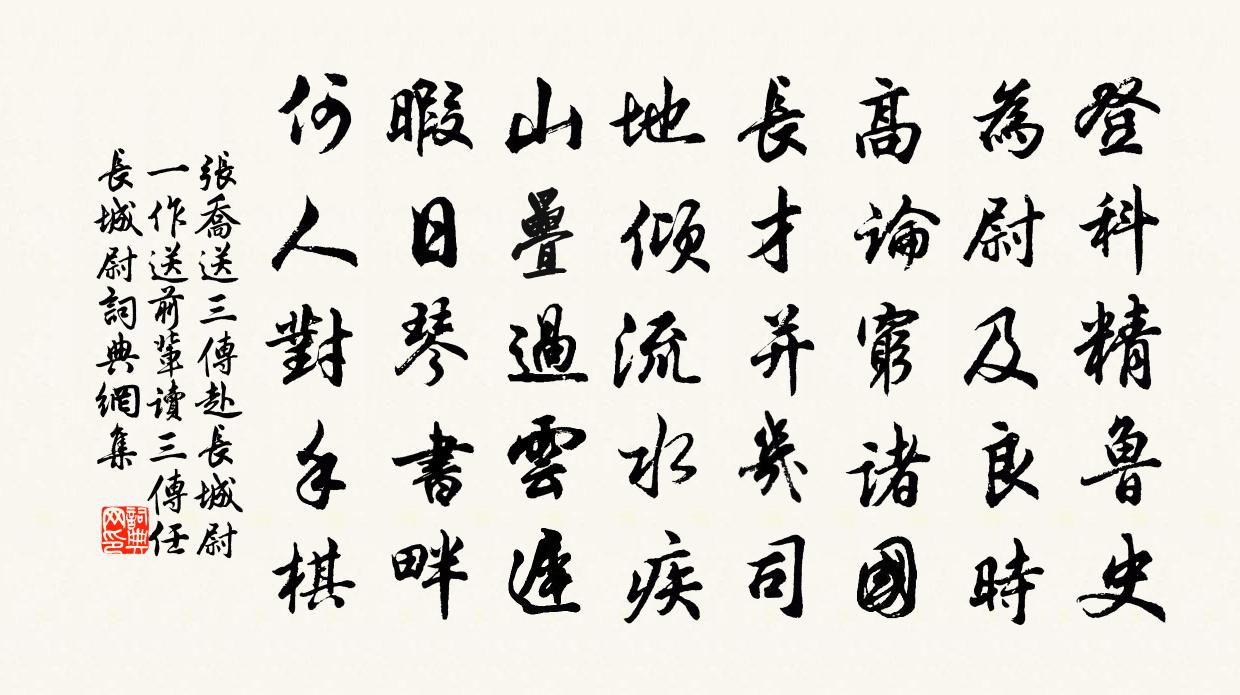 登科精魯史
為尉及良時
高論窮諸國
長才并幾司
地傾流水疾
山疊過雲遲
暇日琴書畔
何人對手棋
張喬送三傳赴長城尉
一作送前輩讀三傳任
長城尉詞典網集
詞典网印